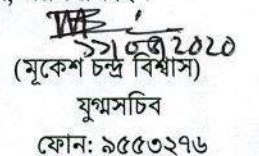 ১১/০৪/2020
(মূকেশ চন্দ্র বিশ্বাস)
যুগ্মসচিব
ফোন: ৯৫৫৩২৭৬